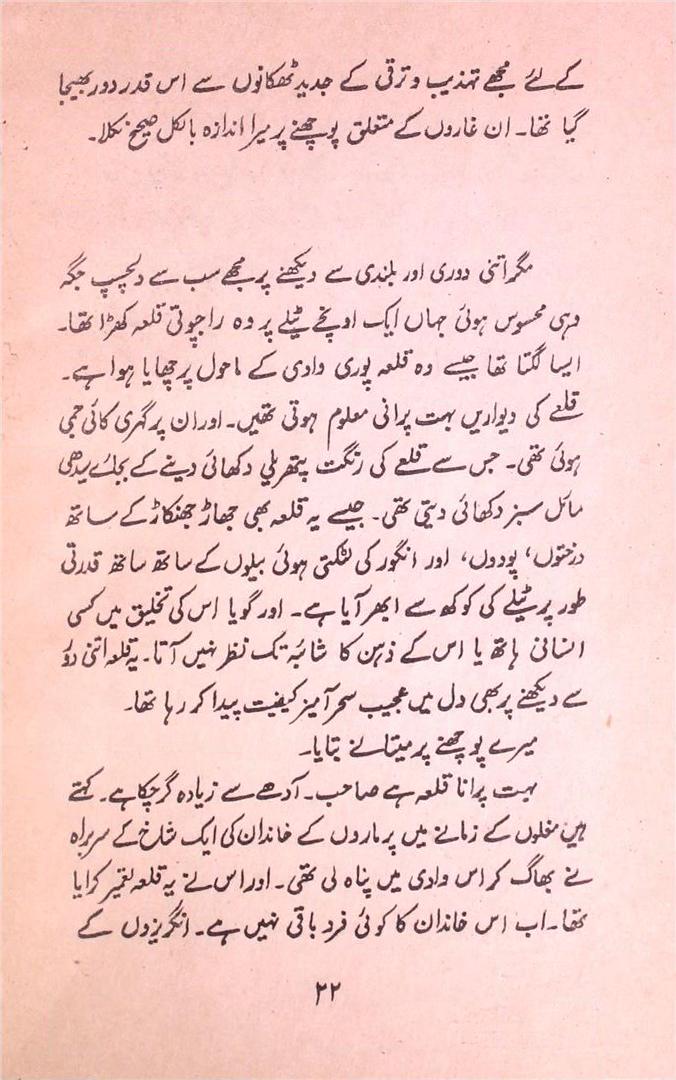 کے لئے مجھے تہذیب و ترقی کے جدید ٹھکانوں سے اس قدر دور بھیجا
گیا تھا۔ ان غاروں کے متعلق پوچھنے پر میرا اندازہ بالکل صحیح نکلا۔
مگر اتنی دوری اور بلندی سے دیکھنے پر مجھے سب سے دلچسپ جگہ
وہی محسوس ہوئی جہاں ایک اونچے ٹیلے پر وہ راجپوتی قلعہ کھڑا تھا۔
ایسا لگتا تھا جیسے وہ قلعہ پوری وادی کے ماحول پر چھایا ہوا ہے۔
قلعے کی دیواریں بہت پرانی معلوم ہوتی تھیں۔ اور ان پر گہری کائی جمی
ہوئی تھی۔ جس سے قلعے کی رنگت پتھریلی دکھائی دینے کے بجائے
مائل سبز دکھائی دیتی تھی۔ جیسے یہ قلعہ بھی جھاڑ جھنکاڑ کے ساتھ
درختوں، پودوں، اور انگور کی لٹکتی ہوئی بیلوں کے ساتھ ساتھ قدرتی
طور پر ٹیلے کی کوکھ سے ابھر آیا ہے۔ اور گویا اس کی تخلیق میں کسی
انسانی ہاتھ یا اس کے ذہن کا شائبہ تک نظر نہیں آتا۔ یہ قلعہ اتنی دور
سے دیکھنے پر بھی دل میں عجیب سحر آمیز کیفیت پیدا کر رہا تھا۔
میرے پوچھنے پر میتا نے بتایا۔
بہت پرانا قلعہ ہے صاحب۔ آدھے سے زیادہ گر چکا ہے۔ کہتے
ہیں مغلوں کے زمانے میں پرماروں کے خاندان کی ایک شاخ کے سربراہ
نے بھاگ کر اس وادی میں پناہ لی تھی۔ اور اس نے یہ قلعہ تعمیر کرایا
تھا۔ اب اس خاندان کا کوئی فرد باقی نہیں ہے۔ انگریزوں کے
۲۲